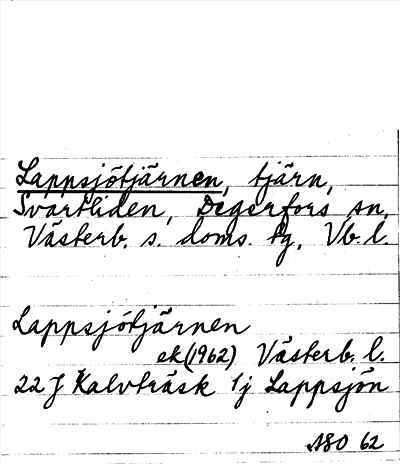 Lappsjötjärnen, tjärn,
Svartliden, Degerfors sn,
Västerb. s. doms. tg, Vb. l.
Lappsjötjärnen
ek (1962) Västerb. l.
22 J Kalvträsk 1j Lappsjön
ABO 62